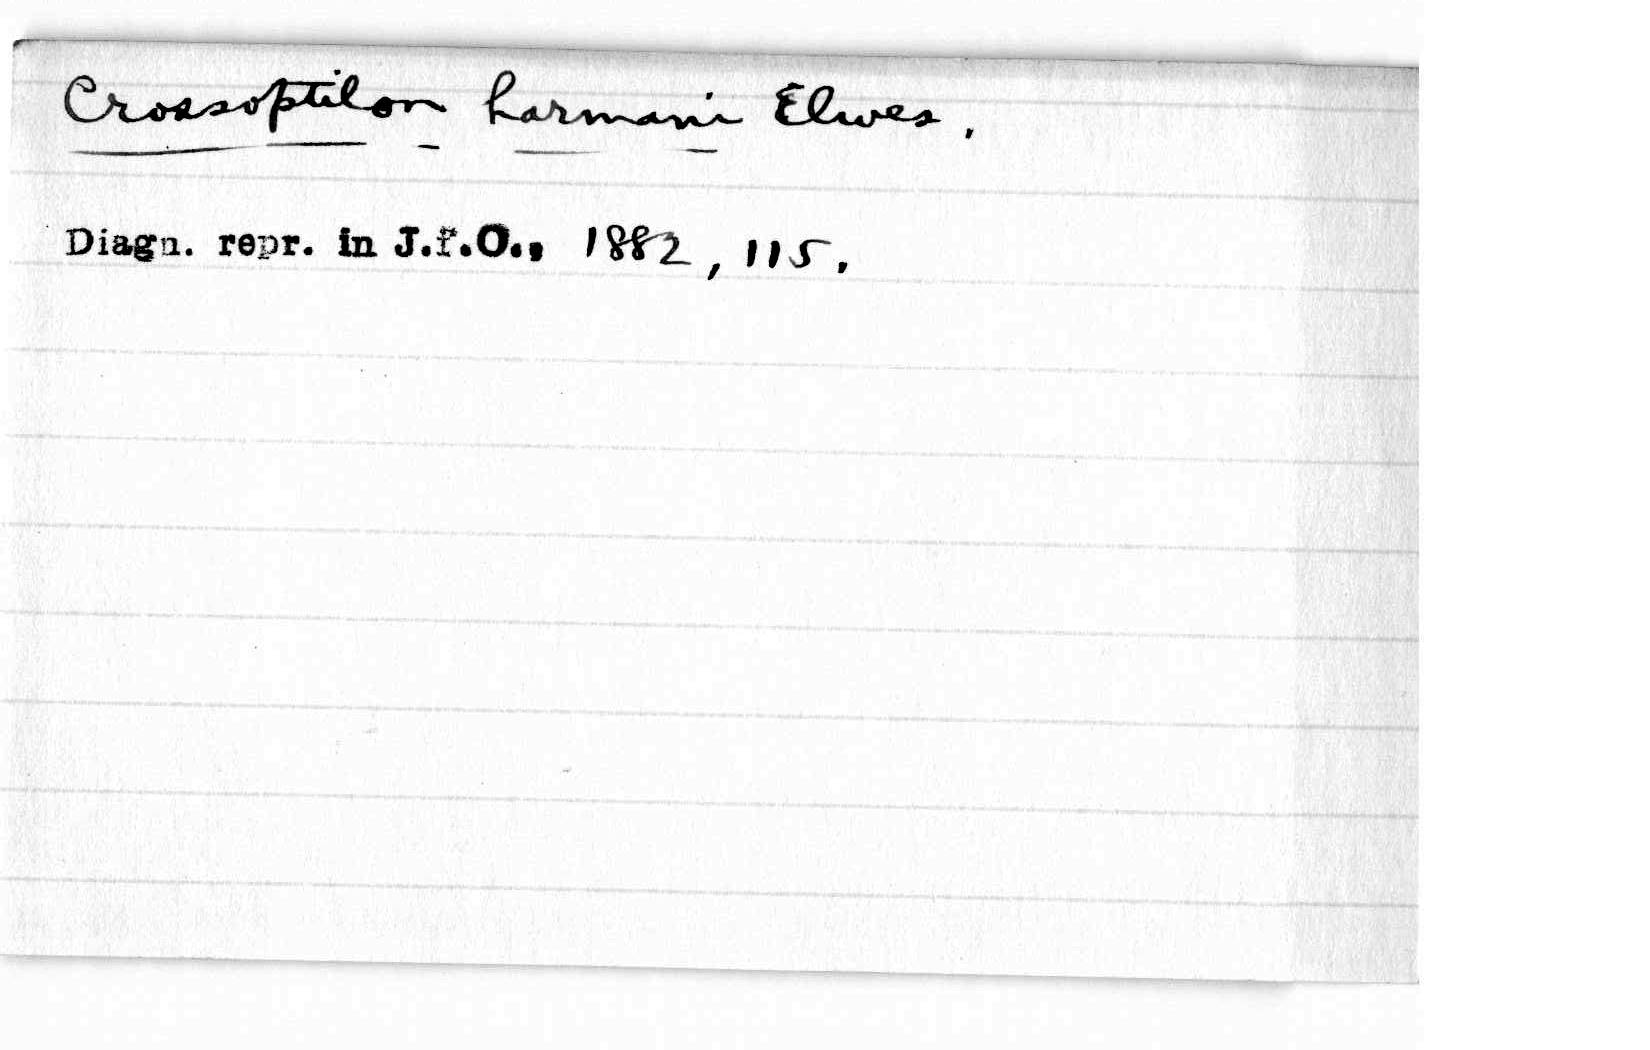 Crossoptilon harmani Elwes.
Diagn. repr. in J.f.O., 1882, 115.